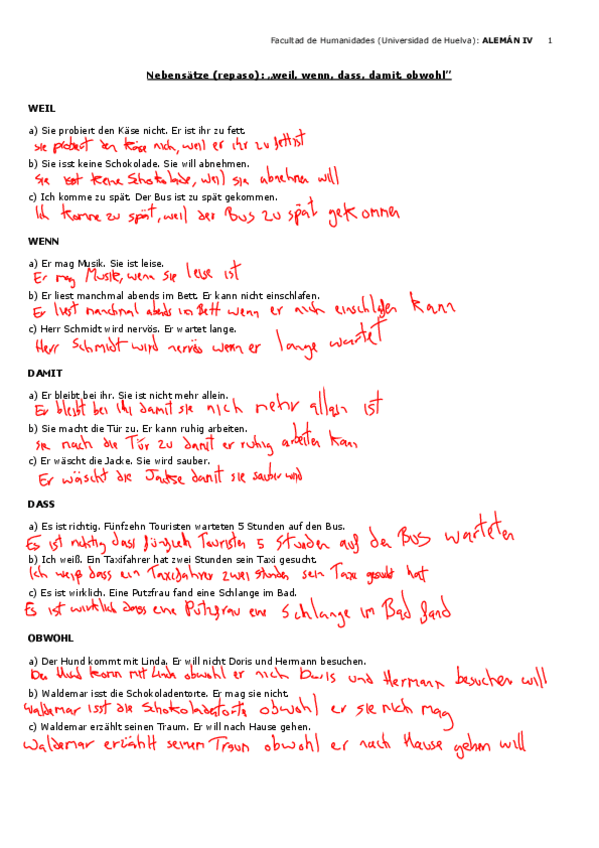 Facultad de Humanidades (Universidad de Huelva): ALEMÁN IV 1
Nebensätze (repaso): „weil, wenn, dass, damit, obwohl"
WEIL
a) Sie probiert den Käse nicht. Er ist ihr zu fett.
sie probiert den Käse nich, weil er ihr zu fett ist
b) Sie isst keine Schokolade. Sie will abnehmen.
Sie isst keine Schokolade, weil sie abnehmen will
c) Ich komme zu spät. Der Bus ist zu spät gekommen.
Ich komme zu spät, weil der Bus zu spät gekommen
WENN
a) Er mag Musik. Sie ist leise.
Er mag Musik, wenn sie leise ist
b) Er liest manchmal abends im Bett. Er kann nicht einschlafen.
Er liest manchmal abends im Bett wenn er nich einschlafen kann
c) Herr Schmidt wird nervös. Er wartet lange.
Herr Schmidt wird nervös wenn er lange wartet
DAMIT
a) Er bleibt bei ihr. Sie ist nicht mehr allein.
Er bleibt bei ihr damit sie nich mehr allein ist
b) Sie macht die Tür zu. Er kann ruhig arbeiten.
sie mach die Tür zu damit er ruhig arbeiten kan
c) Er wäscht die Jacke. Sie wird sauber.
Er wäscht die Jacke damit sie sauber wird
DASS
a) Es ist richtig. Fünfzehn Touristen warteten 5 Stunden auf den Bus.
Es ist richtig dass fünfzieh Touristen 5 Stunden auf den Bus warteten
b) Ich weiß. Ein Taxifahrer hat zwei Stunden sein Taxi gesucht.
Ich weiß dass ein Taxifahrer zwei Stunden sein Taxi gesucht hat
c) Es ist wirklich. Eine Putzfrau fand eine Schlange im Bad.
Es ist wirklich dass eine Putzfrau eine Schlange im Bad fand
OBWOHL
a) Der Hund kommt mit Linda. Er will nicht Doris und Hermann besuchen.
Der Hund komm mit Linda obwohl er nich Doris und Hermann besuchen will
b) Waldemar isst die Schokoladentorte. Er mag sie nicht.
Waldemar isst die Schokoladetorte obwohl er sie nich mag
c) Waldemar erzählt seinen Traum. Er will nach Hause gehen.
Waldemar erzählt seinen Traum obwohl er nach Hause gehen will